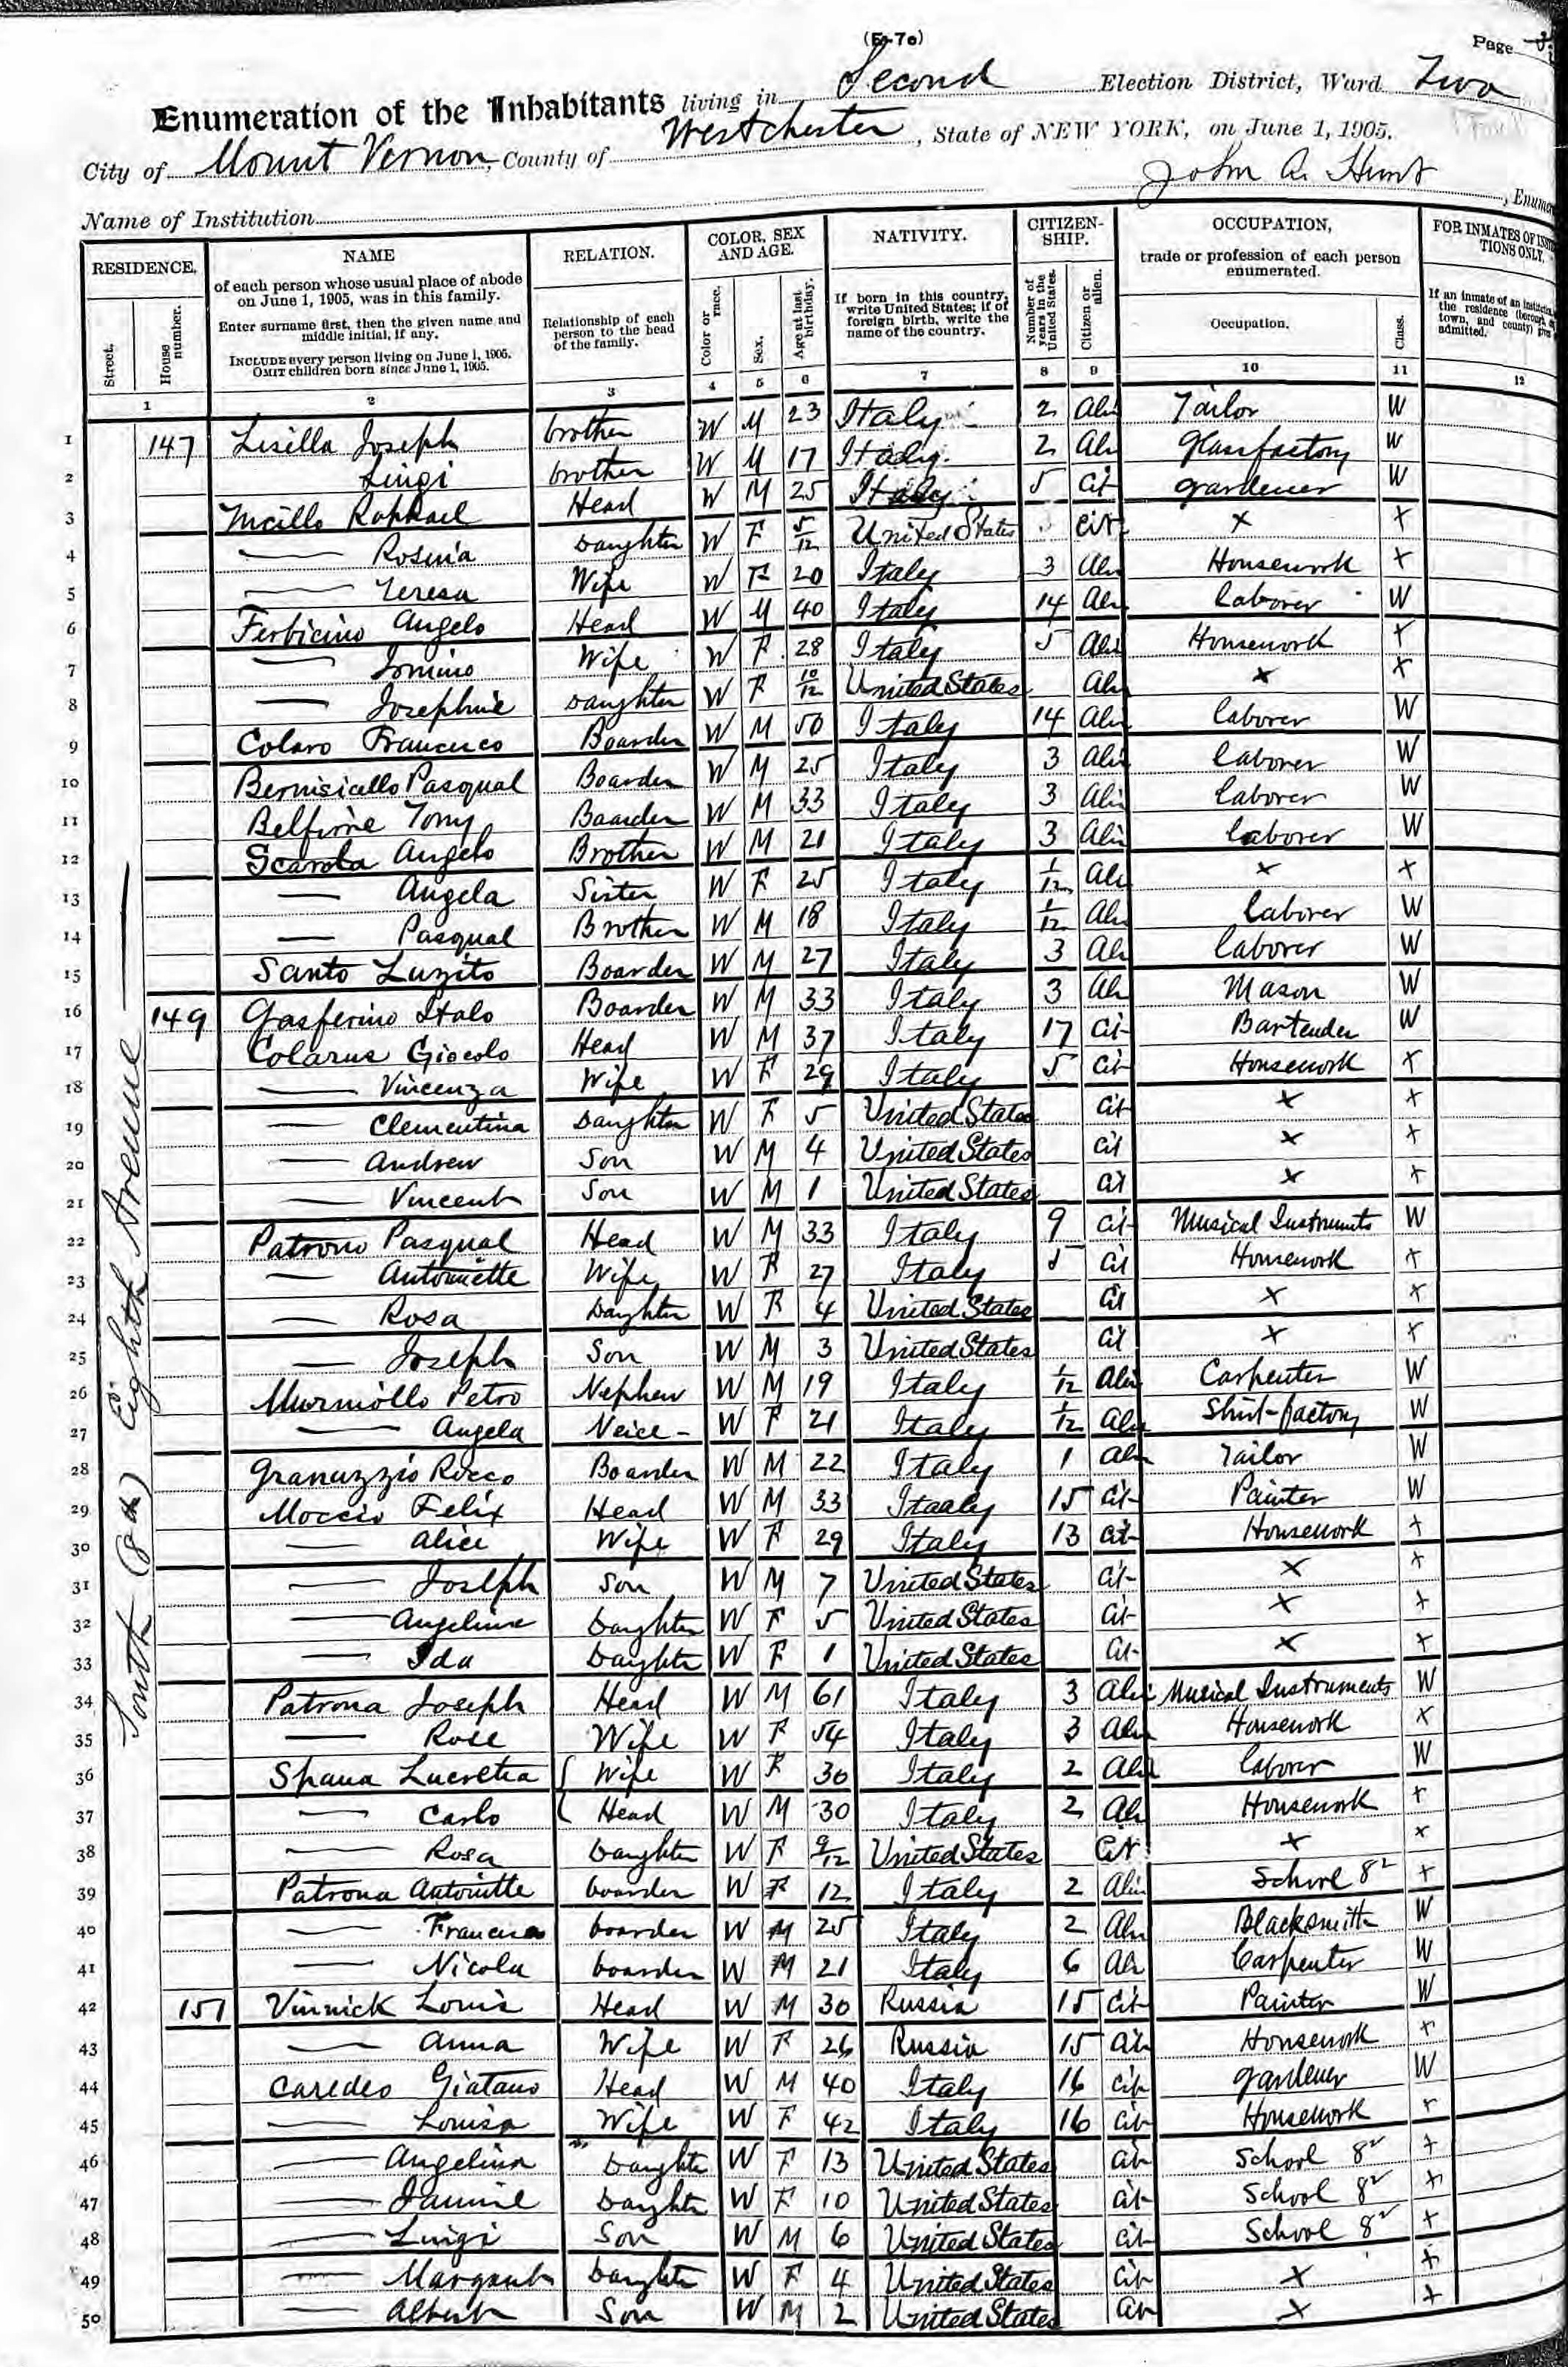 (E-7c)
Page
Enumeration of the Inhabitants living in Second Election District, Ward Two
City of Mount Vernon, County of Westchester, State of NEW YORK, on June 1, 1905.
Name of Institution John A. Hunt, Enumer
RESIDENCE.
Street.
House number.
1
NAME
of each person whose usual place of abode on June 1, 1905, was in this family.
Enter surname first, then the given name and middle initial, if any.
INCLUDE every person living on June 1, 1905.
OMIT children born since June 1, 1905.
2
RELATION.
Relationship of each person to the head of the family.
3
COLOR, SEX AND AGE.
Color or race.
4
Sex.
5
Age at last birthday.
6
NATIVITY.
If born in this country, write United States; if of foreign birth, write the name of the country.
7
CITIZENSHIP.
Number of years in the United States.
8
Citizen or alien.
9
OCCUPATION,
trade or profession of each person enumerated.
Occupation.
10
Class.
11
FOR INMATES OF INSTITUTIONS ONLY.
If an inmate of an institution, the residence (borough, town, and county) admitted.
12
South (8th) So. Eighth Avenue
1 147 Lisilla Joseph brother W M 23 Italy 2 Ali Tailor W
2 Luigi brother W M 17 Italy 2 Al glassfactory W
3 Raphael Head W M 25 Italy 5 Cit gardener W
4 — Rosina Daughter W F 5/12 United States Cit X X
5 — Teresa Wife W F 20 Italy 3 Ali Housework X
6 Ferbicino Angelo Head W M 40 Italy 14 Ali Laborer W
7 — Wife W F 28 Italy 5 Ali Housework X
8 — Josephine Daughter W F 10/12 United States Ali X X
9 Colaro Francisco Boarder W M 50 Italy 14 Ali Laborer W
10 Bernisicallo Pasqual Boarder W M 25 Italy 3 Ali Laborer W
11 Tony Boarder W M 33 Italy 3 Ali Laborer W
12 Scarola Angelo Brother W M 21 Italy 3 Ali Laborer W
13 — Angela Sister W F 25 Italy 1/12 Ali X X
14 — Pasqual Brother W M 18 Italy 1/12 Ali Laborer W
15 Santo Luzito Boarder W M 27 Italy 3 Ali Laborer W
16 149 Gasferino Italo Boarder W M 33 Italy 3 Al Mason W
17 Colarus Giocolo Head W M 37 Italy 17 Cit Bartender W
18 — Vincenza Wife W F 29 Italy 5 Cit Housework X
19 — Clementina Daughter W F 5 United States Cit X X
20 — Andrew Son W M 4 United States Cit X X
21 — Vincent Son W M 1 United States Cit X X
22 Patrono Pasqual Head W M 33 Italy 9 Cit Musical Instruments W
23 — Antoinette Wife W F 27 Italy 5 Cit Housework X
24 — Rosa Daughter W F 4 United States Cit X X
25 — Joseph Son W M 3 United States Cit X X
26 Murmollo Petro Nephew W M 19 Italy 1/12 Alie Carpenter W
27 — Angela Neice - W F 21 Italy 1/12 Ali Shirt-factory W
28 Granuzzio Rocco Boarder W M 22 Italy 1 Ali Tailor W
29 Moccio Felix Head W M 33 Itaaly 15 Cit Painter W
30 — Alice Wife W F 29 Italy 13 Cit Housework X
31 — Joseph Son W M 7 United States Cit X X
32 — Angeline Daughter W F 5 United States Cit X X
33 — Ida Daughter W F 1 United States Cit X X
34 Patrona Joseph Head W M 61 Italy 3 Ali Musical Instruments W
35 — Rose Wife W F 54 Italy 3 Ali Housework X
36 Spana Lucretia Wife W F 30 Italy 2 Ali Laborer W
37 — Carlo Head W M 30 Italy 2 Ali Housework X
38 — Rosa Daughter W F 9/12 United States Cit X X
39 Patrona Antoinette boarder W F 12 Italy 2 Alie School 8 X
40 — boarder W M 25 Italy 2 Ali Blacksmith W
41 — Nicola boarder W M 21 Italy 6 Al Carpenter W
42 151 Vinnick Louis Head W M 30 Russia 15 Cit Painter W
43 — Anna Wife W F 26 Russia 15 Cit Housework X
44 Caredeo Giatano Head W M 40 Italy 16 Cit gardener W
45 — Louisa Wife W F 42 Italy 16 Cit Housework X
46 — Angelina Daughter W F 13 United States Cit School 8 X
47 — Daughter W F 10 United States Cit School 8 X
48 — Luigi Son W M 6 United States Cit School 8 X
49 — Margaret Daughter W F 4 United States Cit X X
50 — Albert Son W M 2 United States Cit X X